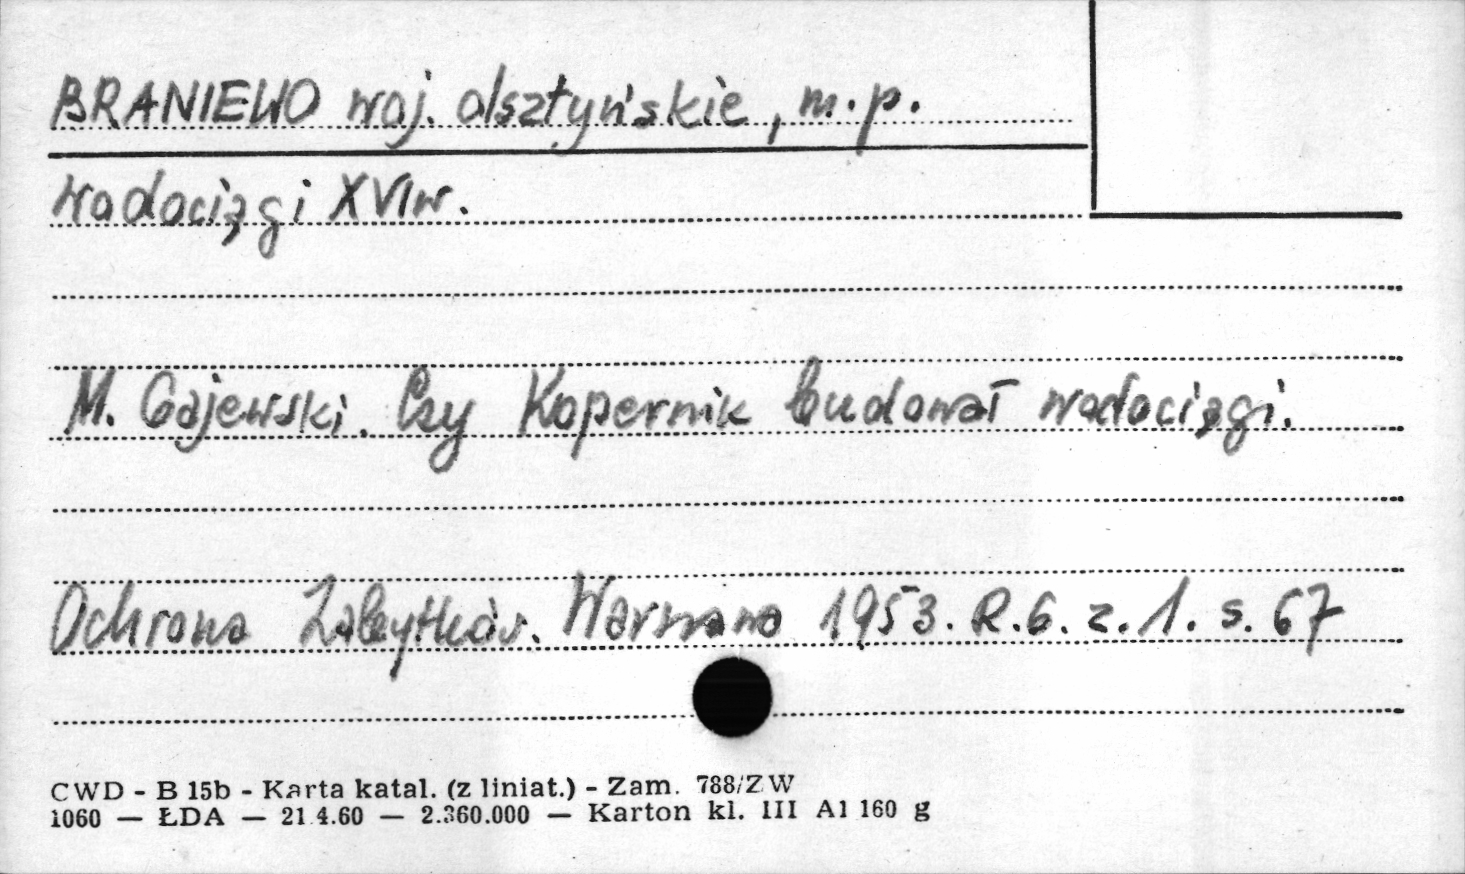 BRANIEWO woj. olsztyńskie, m.p.
Wodociągi XVIw.
M. Gajewski. Czy Kopernik budował wodociągi.
Ochrona Zabytków. Warszawa 1953. R.6. z.1. s.67
CWD - B 15b - Karta katal. (z liniat.) - Zam. 788/ZW
1060 — ŁDA — 21.4.60 — 2.360.000 — Karton kl. III A1 160 g